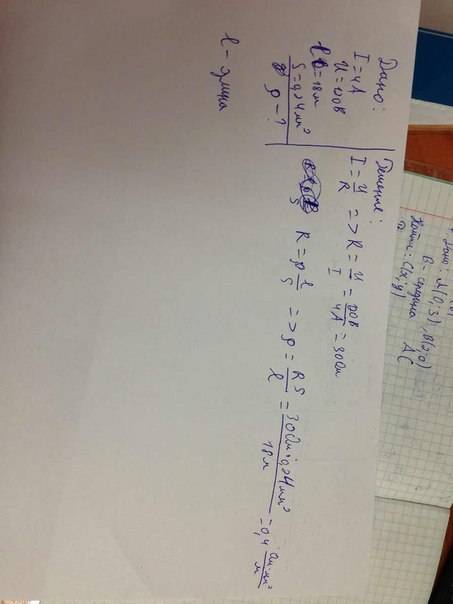 Дано:
I = 4А
U = 120В
l = 18м
S = 0,24мм²
ρ - ?
l - длина
Решение:
I = U/R => R = U/I = 120В/4А = 30Ом
R = ρ l/S => ρ = RS/l = 30Ом·0,24мм²/18м = 0,4 Ом·мм²/м
Дано: A(0;3), B(2;0)
B - середина AC
Найти: C(x;y)